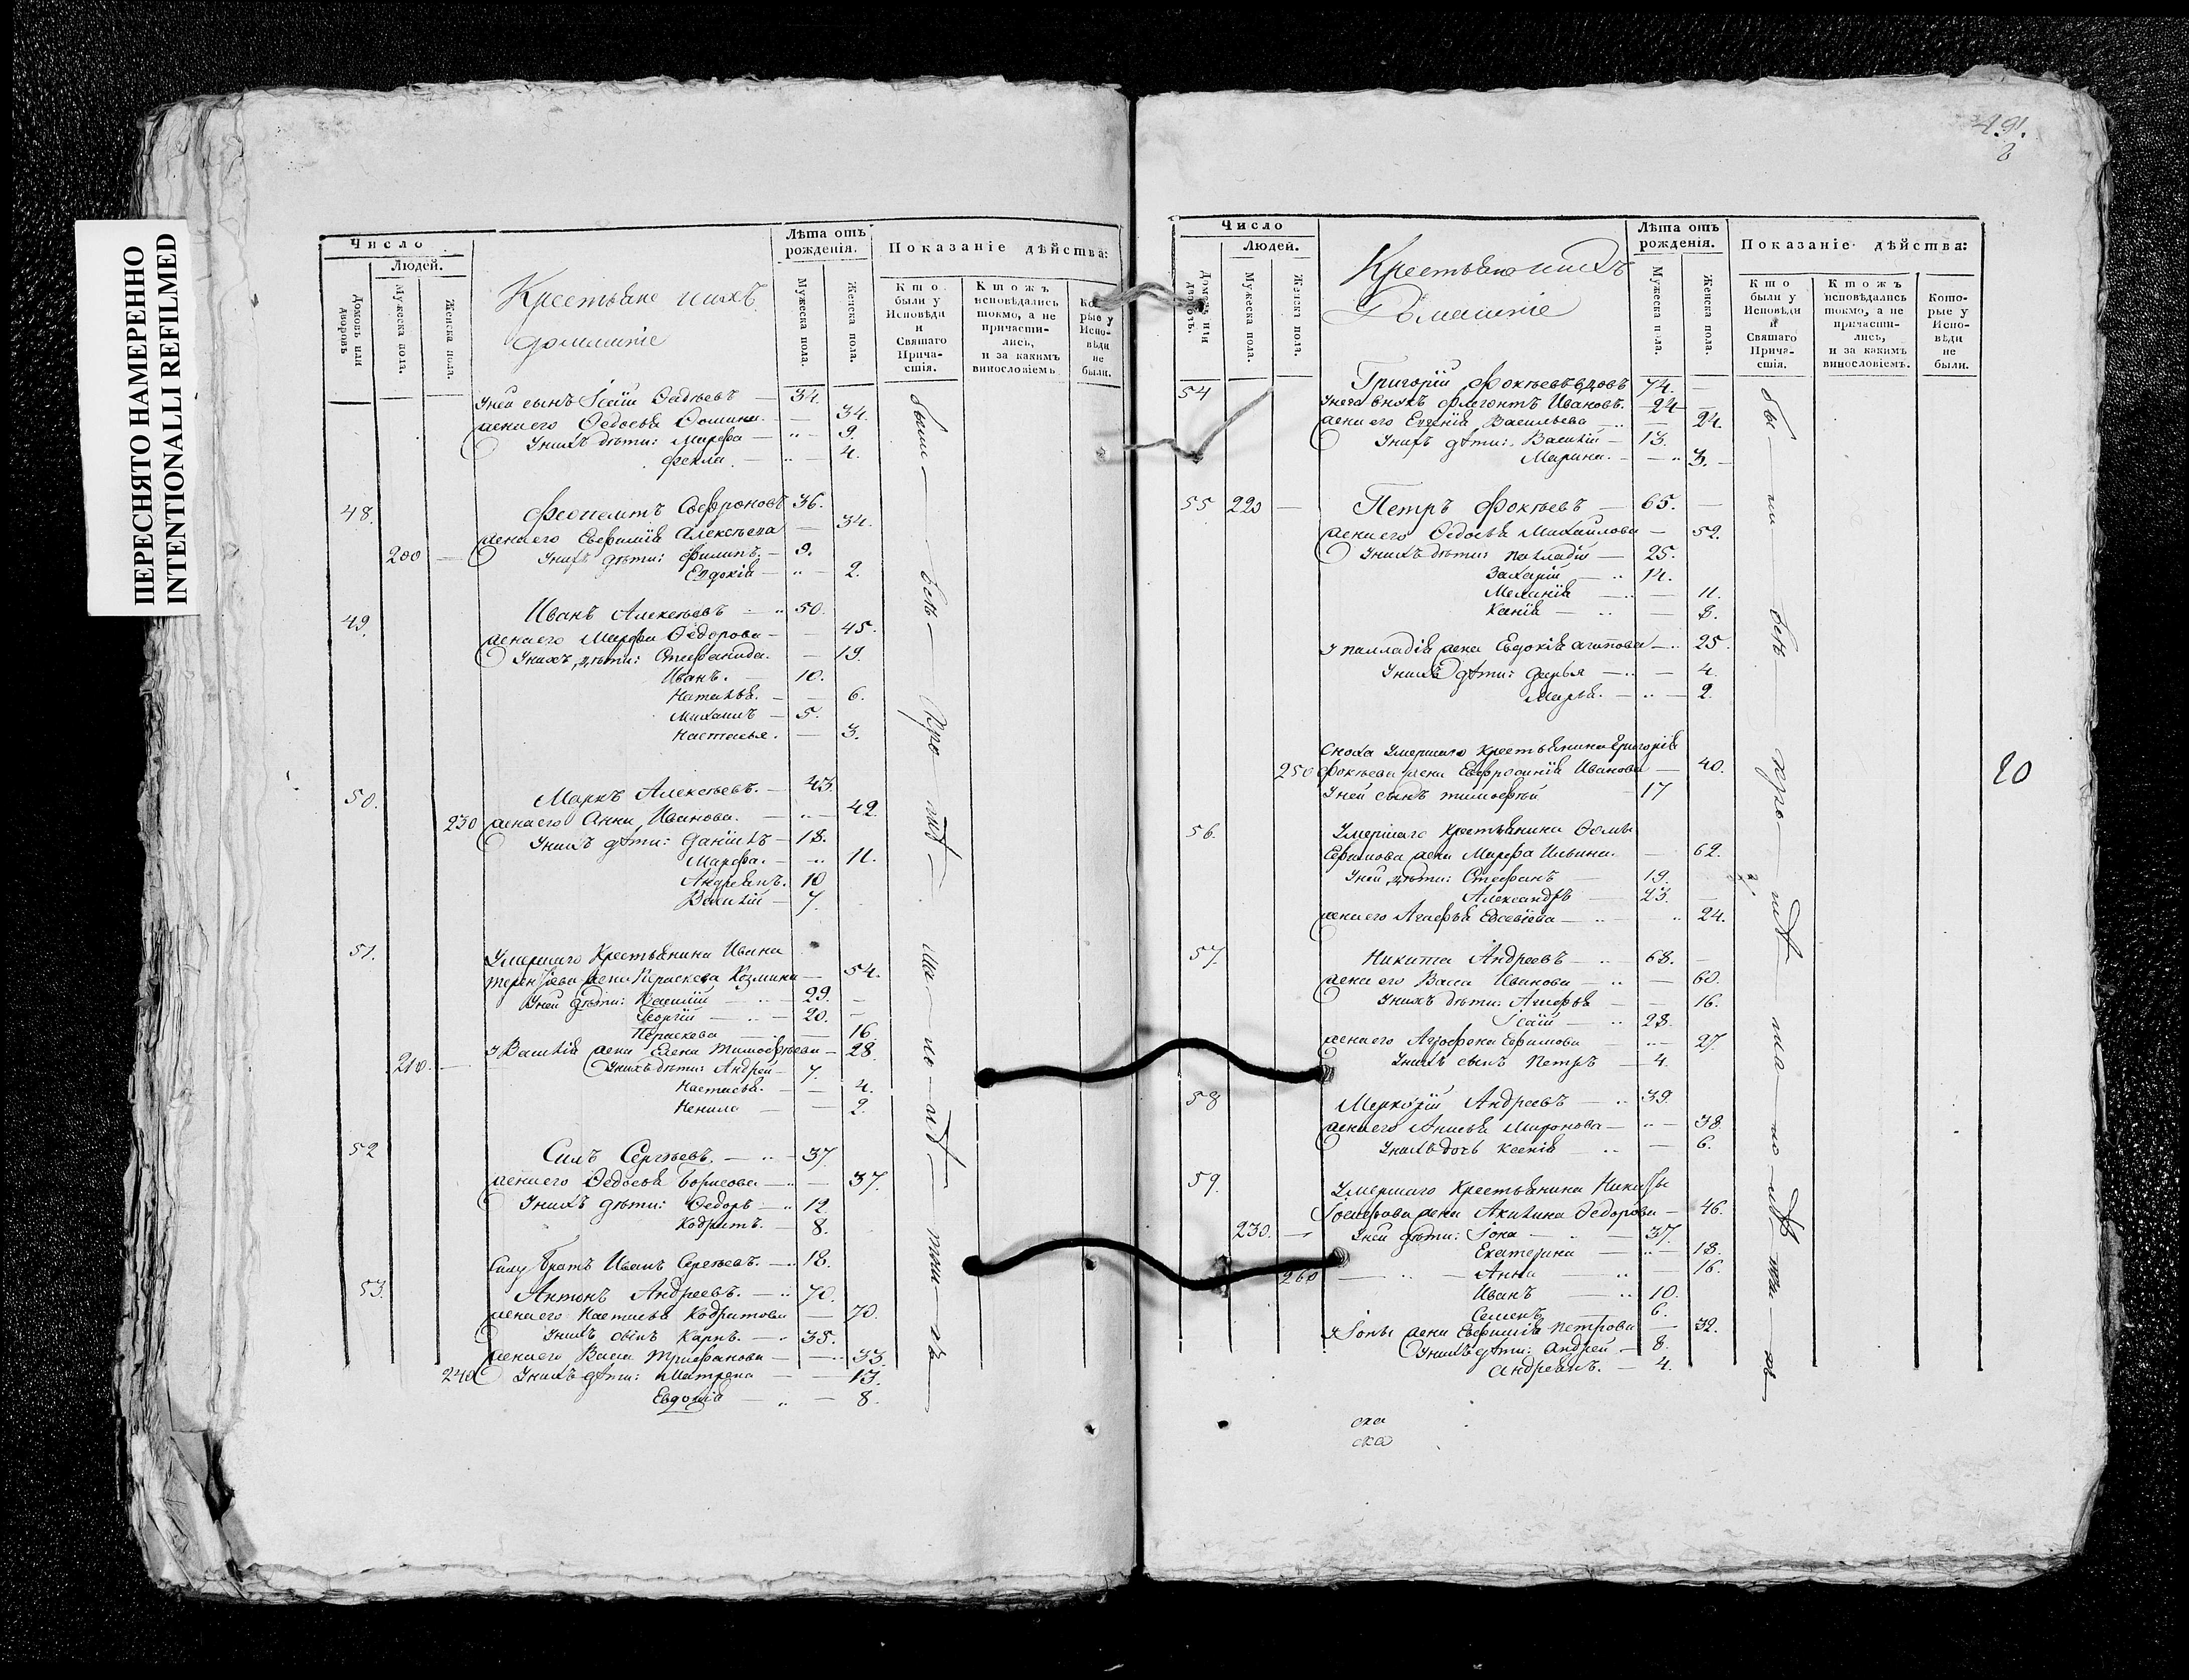 ПЕРЕСНЯТО НАМЕРЕННО
INTENTIONALLI REFILMED
Число
Людей.
Домовъ или дворовъ
Мужеска пола.
Женска пола.
Крестьяне и ихъ
домашніе
Лѣта отъ рожденія.
Мужеска пола.
Женска пола.
Показаніе дѣйства:
Кто были у Исповѣди и Святаго Причастія.
Ктожъ исповѣдались токмо, а не причастились, и за какимъ винословіемъ
Которые у Исповѣди не были.
У ней сынъ Ісаія Фадѣевъ — 34.
жена его Ѳедосья Фомина — 34.
У нихъ дѣти: Марфа — 9.
Фекла — 4.
48. Феопемтъ Софроновъ 36.
жена его Евфимія Алексѣева — 34.
200 — У нихъ дѣти: Филипъ. — 9.
Евдокія — 2.
49. Иванъ Алексѣевъ — 50.
жена его Марфа Ѳедорова — 45.
У нихъ дѣти: Стефанида. — 19.
Иванъ. — 10.
Наталья. — 6.
Михаилъ — 5.
Настасья. — 3.
50. Маркъ Алексѣевъ. — 43.
230 жена его Анна Иванова. — 42.
У нихъ дѣти: Даніилъ — 18.
Марфа. — 11.
Андреянъ. 10
Василій — 7
51. Умершаго Крестьянина Ивана
Терентьева жена Параскева Козмина — 54.
У ней дѣти: Василій — 29. —
Георгій — 20. —
Параскева — 16.
У Василія жена Елена Тимофѣева — 28.
210. — У нихъ дѣти: Андрей — 7.
Настасья. — 4.
Ненила — 2.
52 Силъ Сергѣевъ. — 37.
жена его Ѳедосья Борисова — 37.
У нихъ дѣти: Ѳедоръ — 12
Кодратъ. — 8.
Силу братъ Иванъ Сергѣевъ. — 18.
53. Антонъ Андреевъ. — 70.
жена его Настасья Кодратова — 70.
У нихъ сынъ Карпъ. — 35.
жена его Васса Трифанова — 33.
240 У нихъ дѣти: Матрена — 13.
Евдокія — 8.
были — всѣ —
491.
Число
Людей.
Домовъ или дворовъ.
Мужеска пола.
Женска пола.
Крестьяне и ихъ
Домашніе
Лѣта отъ рожденія.
Мужеска пола.
Женска пола.
Показаніе дѣйства:
Кто были у Исповѣди и Святаго Причастія.
Ктожъ исповѣдались токмо, а не причастились, и за какимъ винословіемъ.
Которые у Исповѣди не были.
54 Григорій Фокѣевъ вдовъ 74. —
У него внукъ Флегонтъ Ивановъ. — 24 —
жена его Евгенія Васильева — 24.
У нихъ дѣти: Василій — 13.
Марина. — 3. —
55 220 — Петръ Фокѣевъ — 65. —
жена его Ѳедосья Михайлова — 52.
У нихъ дѣти: Палладій — 25.
Захарій — 14.
Меланія — 11.
Ксенія — 8.
У Палладія жена Евдокія Агапова — 25.
У нихъ дѣти: Дарья — 4.
Марья. — 2.
Сноха Умершаго Крестьянина Григорія
250 Фокѣева жена Евфросинія Иванова — 40.
У ней сынъ Тимофѣй — 17
56. Умершаго Крестьянина Фомы
Ефимова жена Марфа Ильина. — 62.
У ней дѣти: Стефанъ — 19.
Александръ — 23. —
жена его Агафья Евсевіева — 24.
57. Никита Андреевъ — 68. —
жена его Васса Иванова — 60.
У нихъ дѣти: Агафья — 16.
Ісаія — 28.
жена его Агрофена Ефимова — 27.
У нихъ сынъ Петръ — 4.
58 Меркурій Андреевъ — 39.
жена его Анисья Миронова — 38.
У нихъ дочь Ксенія — 6.
59. Умершаго Крестьянина Никиты
Іосифова жена Акилина Ѳедорова — 46.
230. — У ней дѣти: Іона — 37.
Екатерина — 18.
260 — Анна — 16.
Иванъ — 10.
Семенъ. 6.
У Іоны жена Евфимія Петрова — 32.
У нихъ дѣти: Андрей — 8.
Андреянъ. — 4.
бы — ли — всѣ —
20